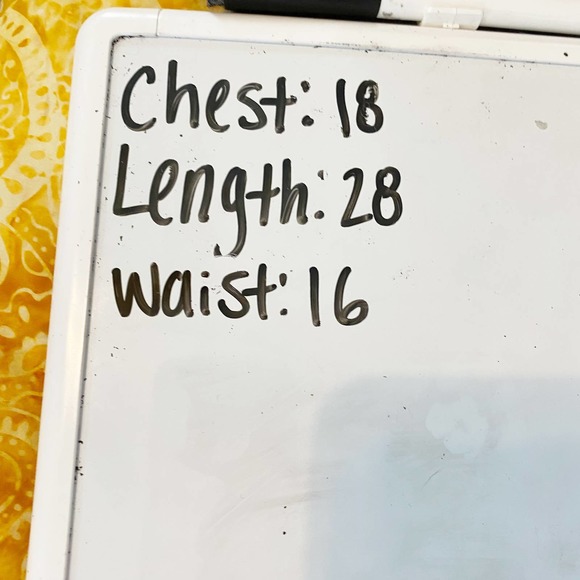 Chest: 18
Length: 28
Waist: 16